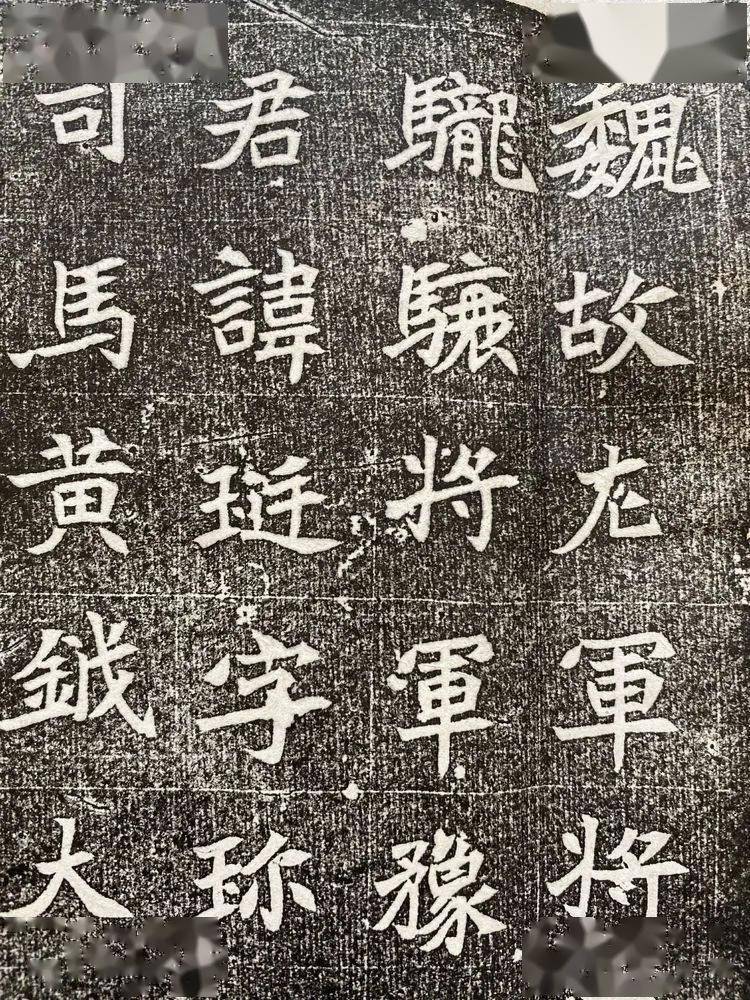 魏故左軍將
䮾驤將軍豫
君諱珽字珎
司馬黄鉞大